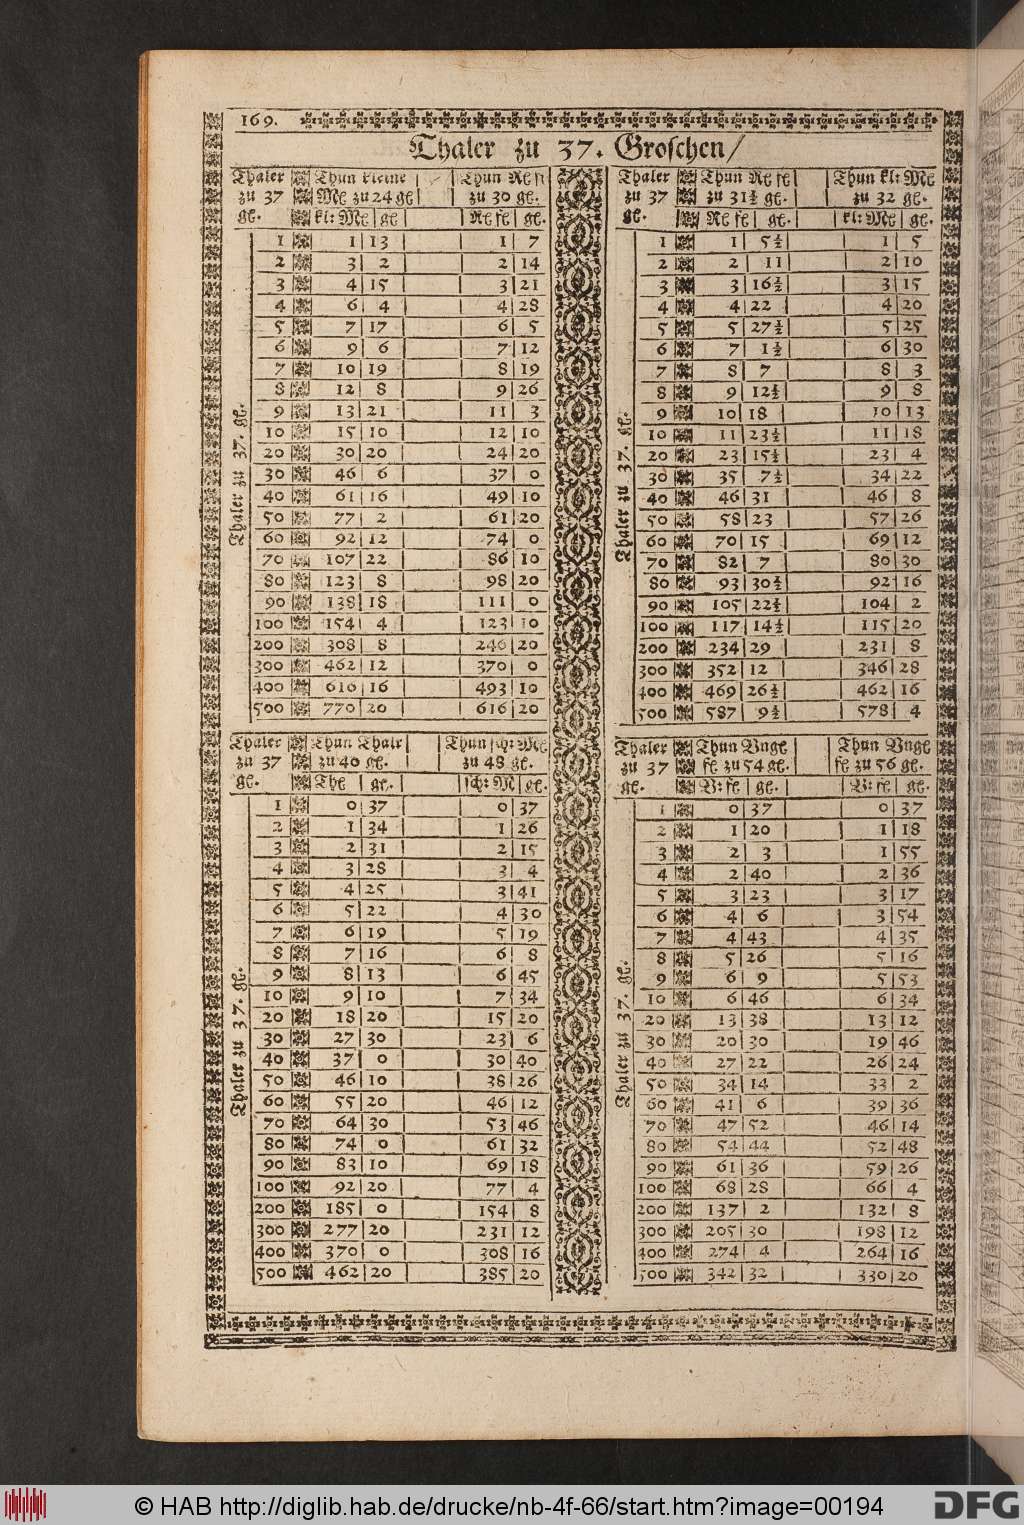 169.
Thaler zu 37. Groschen/
Thaler Thun kleine Thun Rc fl
zu 37 Mc zu 24 gc zu 30 gc.
gc. kl: Mc gc Rc fc gc.
Thaler zu 37. gc.
1 1 13 1 7
2 3 2 2 14
3 4 15 3 21
4 6 4 4 28
5 7 17 6 5
6 9 6 7 12
7 10 19 8 19
8 12 8 9 26
9 13 21 11 3
10 15 10 12 10
20 30 20 24 20
30 46 6 37 0
40 61 16 49 10
50 77 2 61 20
60 92 12 74 0
70 107 22 86 10
80 123 8 98 20
90 138 18 111 0
100 154 4 123 10
200 308 8 246 20
300 462 12 370 0
400 616 16 493 10
500 770 20 616 20
Thaler Thun Thalr Thun sch: Mc
zu 37 zu 40 gc. zu 48 gc.
gc. Thc gc. sch: M gc.
Thaler zu 37. gc.
1 0 37 0 37
2 1 34 1 26
3 2 31 2 15
4 3 28 3 4
5 4 25 3 41
6 5 22 4 30
7 6 19 5 19
8 7 16 6 8
9 8 13 6 45
10 9 10 7 34
20 18 20 15 20
30 27 30 23 6
40 37 0 30 40
50 46 10 38 26
60 55 20 46 12
70 64 30 53 46
80 74 0 61 32
90 83 10 69 18
100 92 20 77 4
200 185 0 154 8
300 277 20 231 12
400 370 0 308 16
500 462 20 385 20
Thaler Thun Rc fc Thun kl: Mc
zu 37 zu 31½ gc. zu 32 gc.
gc. Rc fc gc. kl: Mc gc.
Thaler zu 37. gc.
1 1 5½ 1 5
2 2 11 2 10
3 3 16½ 3 15
4 4 22 4 20
5 5 27½ 5 25
6 7 1½ 6 30
7 8 7 8 3
8 9 12½ 9 8
9 10 18 10 13
10 11 23½ 11 18
20 23 15½ 23 4
30 35 7½ 34 22
40 46 31 46 8
50 58 23 57 26
60 70 15 69 12
70 82 7 80 30
80 93 30½ 92 16
90 105 22½ 104 2
100 117 14½ 115 20
200 234 29 231 8
300 352 12 346 28
400 469 26½ 462 16
500 587 9½ 578 4
Thaler Thun Vngc Thun Vngc
zu 37 fc zu 54 gc. fc zu 56 gc.
gc. V: fc gc. V: fc gc.
Thaler zu 37. gc.
1 0 37 0 37
2 1 20 1 18
3 2 3 1 55
4 2 40 2 36
5 3 23 3 17
6 4 6 3 54
7 4 43 4 35
8 5 26 5 16
9 6 9 5 53
10 6 46 6 34
20 13 38 13 12
30 20 30 19 46
40 27 22 26 24
50 34 14 33 2
60 41 6 39 36
70 47 52 46 14
80 54 44 52 48
90 61 36 59 26
100 68 28 66 4
200 137 2 132 8
300 205 30 198 12
400 274 4 264 16
500 342 32 330 20
© HAB http://diglib.hab.de/drucke/nb-4f-66/start.htm?image=00194
DFG